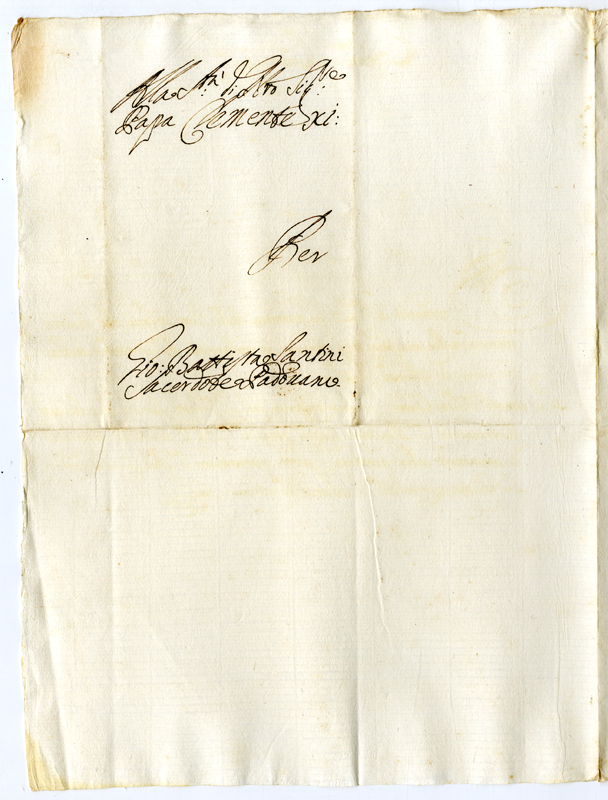 Alla S.tà di Nro Sig:re
Papa Clemente xi:
Per
Gio: Battista Santini
Sacerdote Padouano